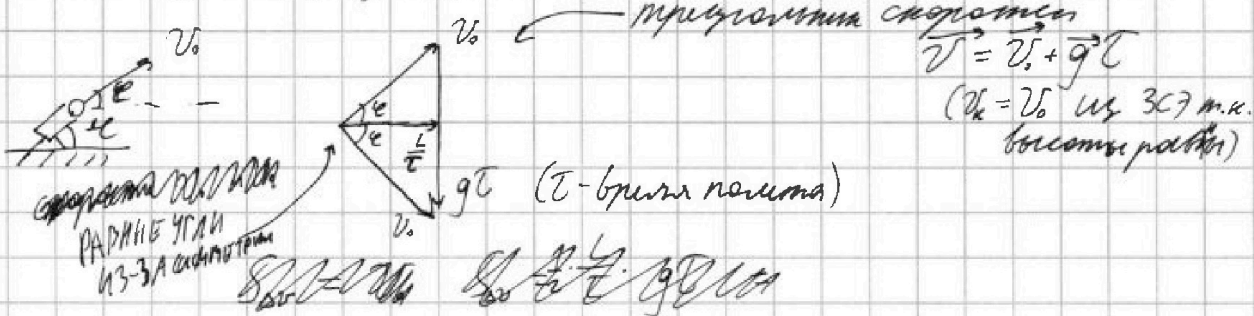 треугольник скоростей
v⃗ = v⃗₀ + g⃗τ
(vₖ = v₀ из ЗСЭ т.к.
высоты равны)
v₀
φ
φ
v₀
φ
φ
L/τ
gτ
v₀
(τ - время полета)
РАВНЫЕ УГЛЫ
ИЗ-ЗА симметрии